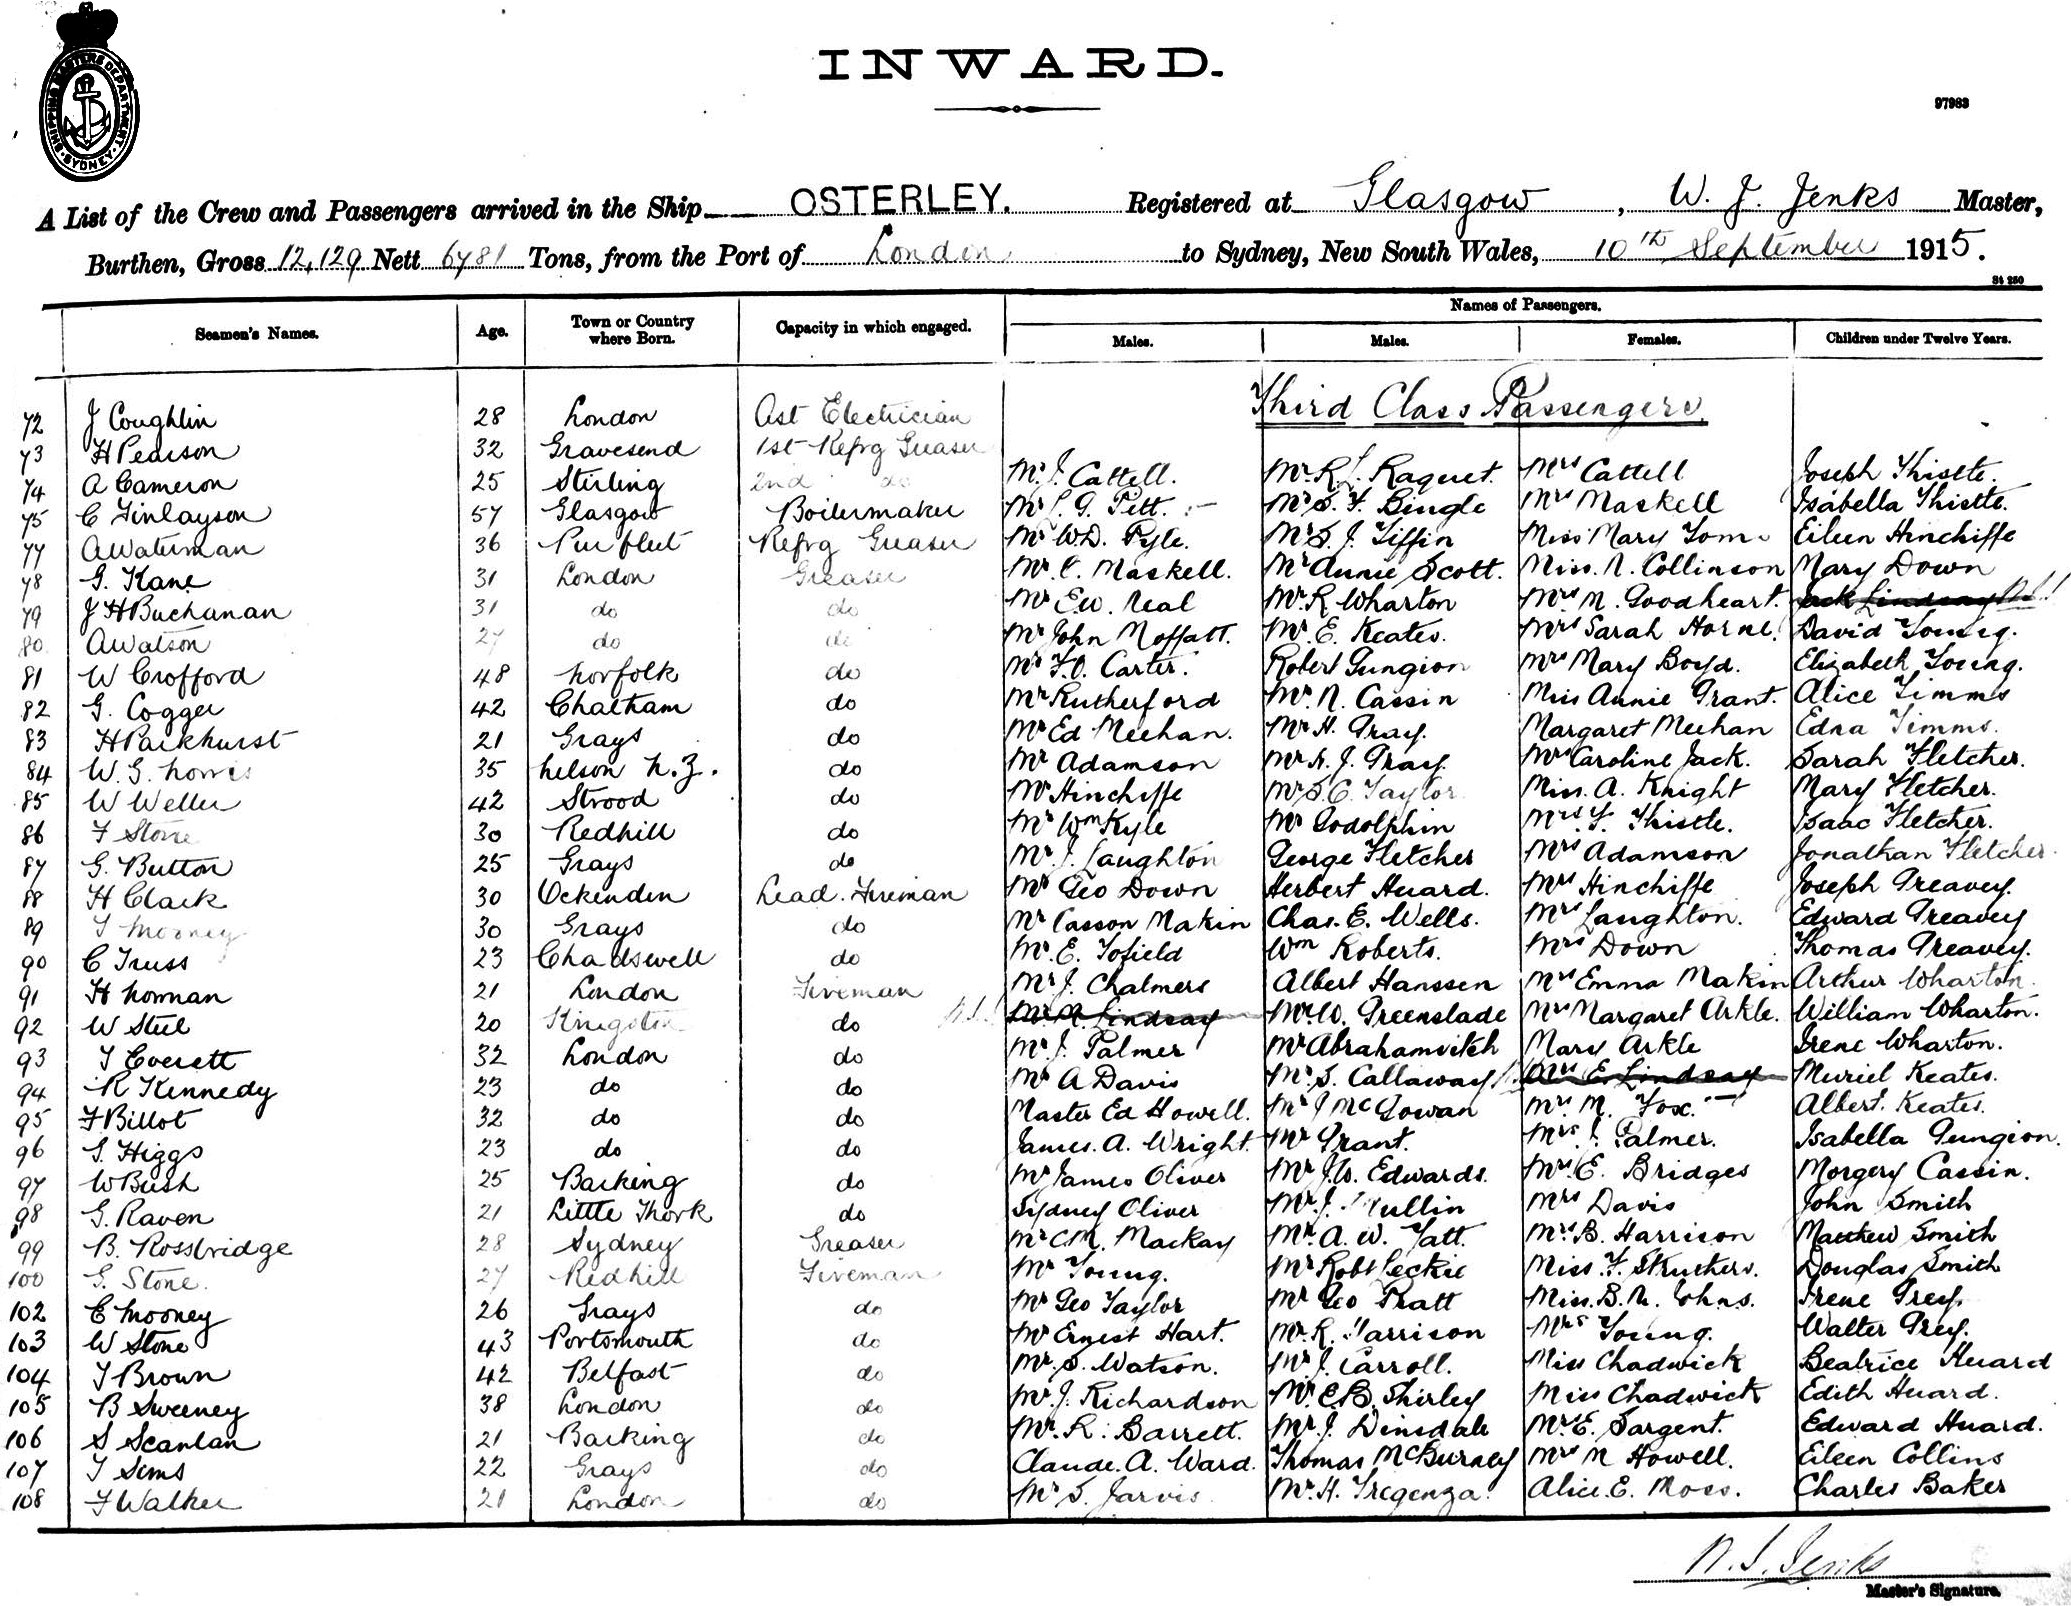 SHIPPING MASTERS DEPARTMENT. SYDNEY.
INWARD.
97983
A List of the Crew and Passengers arrived in the Ship OSTERLEY. Registered at Glasgow, W. J. Jenks Master,
Burthen, Gross 12,129 Nett 6781 Tons, from the Port of London to Sydney, New South Wales, 10th September 1915.
St 250
Names of Passengers.
Seamen's Names. Age. Town or Country where Born. Capacity in which engaged. Males. Males. Females. Children under Twelve Years.
Third Class Passengers
72 J Coughlin 28 London Ast Electrician
73 H Pearson 32 Gravesend 1st Refrg Greaser
74 A Cameron 25 Stirling 2nd do Mr J. Cattell. Mr R. L. Raquet. Mrs Cattell Joseph Thistle.
75 C Finlayson 57 Glasgow Boilermaker Mr L. G. Pitt. Mr S. F. Bingle Mrs Maskell Isabella Thistle.
77 A Waterman 36 Purfleet Refrg Greaser Mr WD. Pyle. Mr S. J. Tiffin Miss Mary Tom Eileen Hinchiffe
78 G. Kane 31 London Greaser Mr C. Maskell. Mr Annie Scott. Miss. N. Collinson Mary Down
79 J H Buchanan 31 do do Mr E.W. Neal Mr R Wharton Mrs M. Goodheart. Jack Lindsay
80 A Watson 27 do do Mr John Moffatt. Mr. E. Keates. Mrs Sarah Horne. David Young.
81 W Crofford 48 Norfolk do Mr F.O. Carter. Robert Gungion Mrs Mary Boyd. Elizabeth Young.
82 G. Cogger 42 Chatham do Mr Rutherford Mr. N. Cassin Miss Annie Grant. Alice Timms
83 H Parkhurst 21 Grays do Mr Ed Meehan. Mr H. Gray. Margaret Meehan Edna Timms.
84 W. G. Norris 35 Nelson N.Z. do Mr Adamson Mr H. J. Gray. Mrs Caroline Jack. Sarah Fletcher.
85 W Weller 42 Strood do Mr Hinchiffe Mr S. C. Taylor. Miss. A. Knight Mary Fletcher.
86 F Stone 30 Redhill do Mr Wm Kyle Mr Godolphin Mrs Y. Thistle. Isaac Fletcher.
87 G. Button 25 Grays do Mr J. Laughton George Fletcher Mrs Adamson Jonathan Fletcher.
88 H Clack 30 Ockenden Lead. Fireman Mr Geo Down Herbert Huard. Mrs Hinchiffe Joseph Greavey.
89 T Mooney 30 Grays do Mr Casson Makin Chas. E. Wells. Mrs Laughton. Edward Greavey
90 C Truss 23 Chadswell do Mr. E. Tofield Wm Roberts. Mrs Down Thomas Greavey.
91 H Norman 21 London Fireman Mr J. Chalmers Albert Hanssen Mrs Emma Makin Arthur Wharton.
92 W Steel 20 Kingston do Mr. N. Lindsay Mr. W. Greenslade Mrs Margaret Arkle. William Wharton.
93 T Everett 32 London do Mr. J. Palmer Mr Abrahamvitch Mary Arkle Irene Wharton.
94 R Kennedy 23 do do Mr A Davis Mr. S. Callaway Mrs E Lindsay Muriel Keates.
95 F Billot 32 do do Master Ed Howell. Mr J McGowan Mrs M. Fox. Albert. Keates.
96 G. Higgs 23 do do James. A. Wright. Mr Grant. Mrs J. Palmer. Isabella Gungion.
97 W Bush 25 Barking do Mr James Oliver Mr J.W. Edwards. Mrs E. Bridges Morgery Cassin.
98 G. Raven 21 Little Thork do Sydney Oliver Mr. J. Mullin Mrs Davis John Smith
99 B. Rossbridge 28 Sydney Greaser Mr C.M. Mackay Mr. A. W. Tatt. Mrs B. Harrison Matthew Smith
100 G. Stone. 27 Redhill Fireman Mr Young. Mr Robt Peckie Miss. F. Struthers. Douglas Smith
102 E Mooney 26 Grays do Mr Geo Taylor Mr Geo Pratt Miss. B. M. Johns. Irene Grey.
103 W Stone 43 Portsmouth do Mr Ernest Hart. Mr. R. Harrison Mrs Young. Walter Grey.
104 T Brown 42 Belfast do Mr. S. Watson. Mr J. Carroll. Miss Chadwick Beatrice Huard
105 B Sweeney 38 London do Mr. J. Richardson Mr. C.B. Shirley Miss Chadwick Edith Huard.
106 S Scanlan 21 Barking do Mr. R. Barrett. Mr. J. Dinsdale Mr E. Sargent. Edward Huard.
107 T Sims 22 Grays do Claude. A. Ward. Thomas McBurney Mrs M Howell. Eileen Collins
108 F Walker 21 London do Mr S. Jarvis Mr. H. Tregenza. Alice. E. Moss. Charles Baker
W. J. Jenks
Master's Signature.